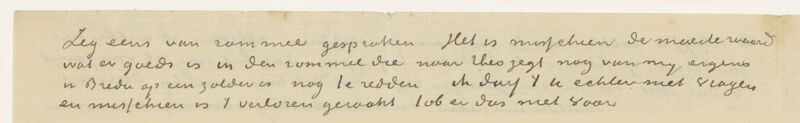 Zeg eens van rommel gesproken Het is misschien de moeite waard
wat er goeds is in den rommel die naar Theo zegt nog van my ergens
in Breda op een zolder is nog te redden ik durf 't u echter niet vragen
en misschien is 't verloren geraakt tob er dus niet voor